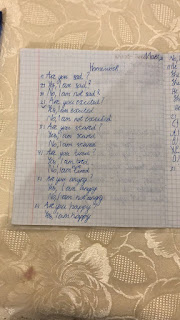 Homework
1) Are you sad?
Yes, I am sad?
No, I am not sad?
2) Are you excited?
Yes, I am excited
No, I am not excited
3) Are you scared?
Yes, I am scared
No, I am scared
4) Are you tired?
Yes, I am tired
No, I am tired
5) Are you angry?
Yes, I am angry
No, I am not angry
6) Are you happy?
Yes, I am happy